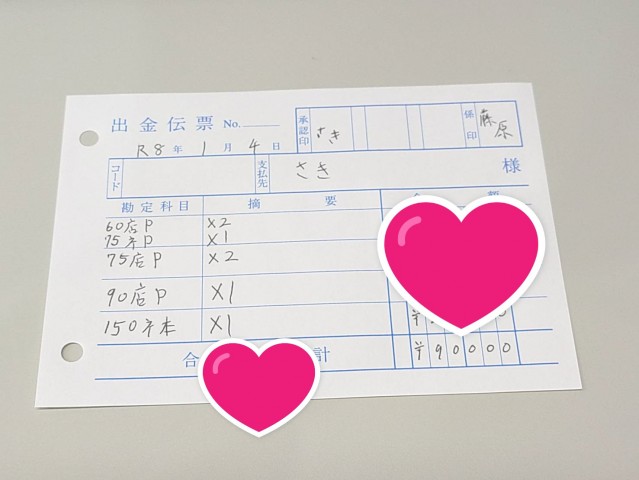 出金伝票 No.
承認印 さき 係印 藤原
R8年 1月 4日
コード 支払先 さき 様
勘定科目 摘要 金額
60店P ×2
75ネP ×1
75店P ×2
90店P ×1
150ネ本 ×1
合計 ¥90000